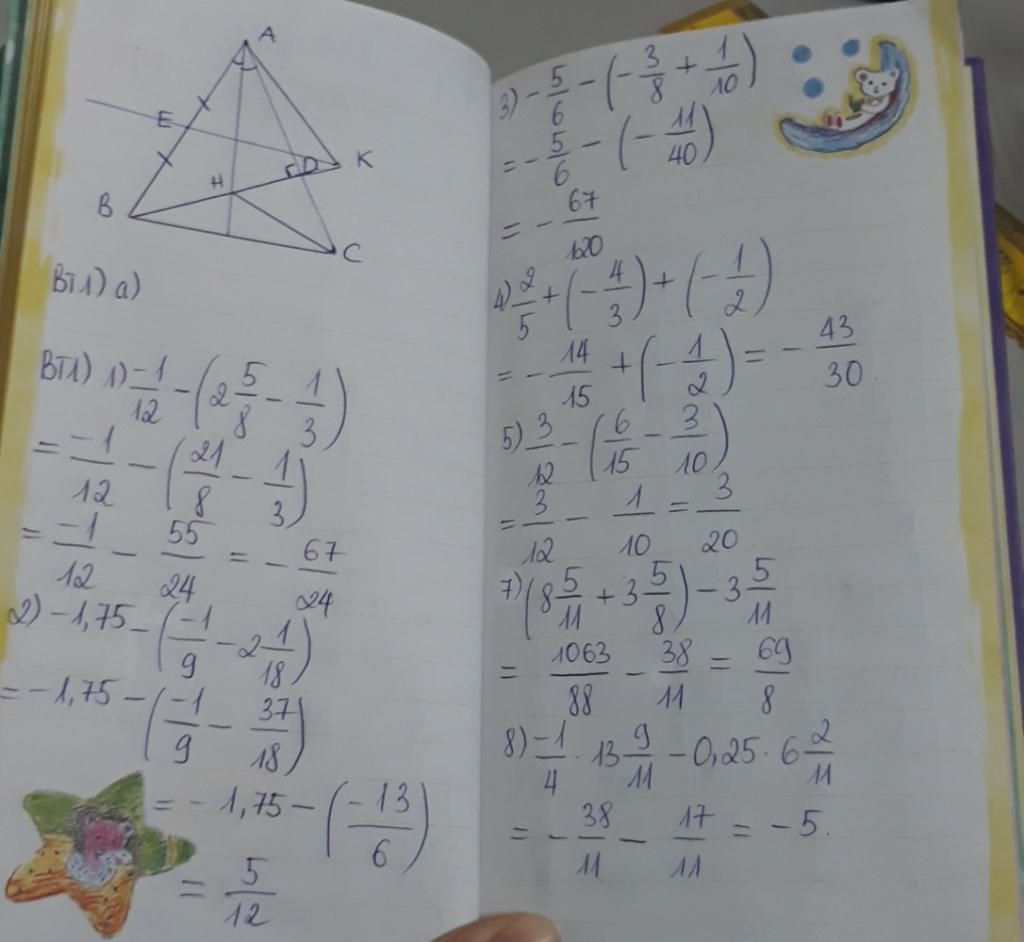 A
E
D
K
H
B
C
BT1) a)
BT1) 1) -1/12 - (2 5/8 - 1/3)
= -1/12 - (21/8 - 1/3)
= -1/12 - 55/24 = - 67/24
2) -1,75 - (-1/9 - 2 1/18)
= -1,75 - (-1/9 - 37/18)
= -1,75 - (-13/6)
= 5/12
3) - 5/6 - (- 3/8 + 1/10)
= - 5/6 - (- 11/40)
= - 67/120
4) 2/5 + (- 4/3) + (- 1/2)
= - 14/15 + (- 1/2) = - 43/30.
5) 3/12 - (6/15 - 3/10)
= 3/12 - 1/10 = 3/20.
7) (8 5/11 + 3 5/8) - 3 5/11
= 1063/88 - 38/11 = 69/8
8) -1/4 . 13 9/11 - 0,25 . 6 2/11
= - 38/11 - 17/11 = -5.